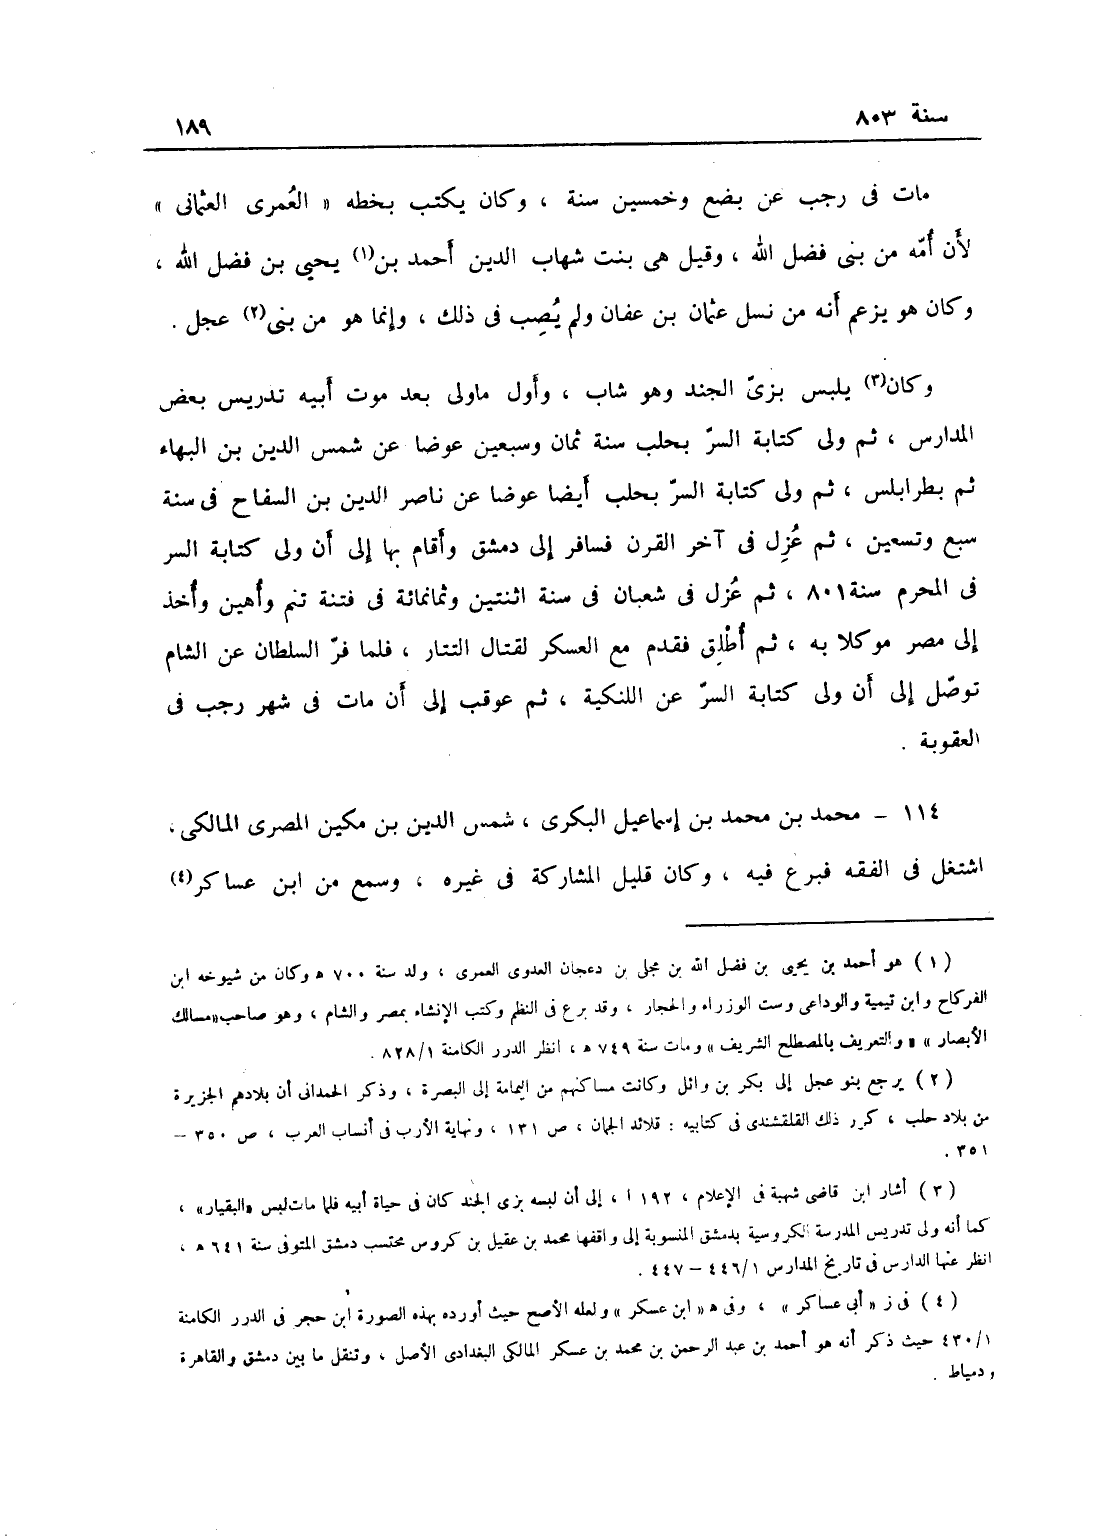 سنة ٨٠٣
١٨٩
مات فى رجب عن بضع وخمسين سنة ، وكان يكتب بخطه « العُمرى العثمانى »
لأَن أُمّه من بنى فضل الله ، وقيل هى بنت شهاب الدين أَحمد بن(١) يحيي بن فضل الله ،
وكان هو يزعم أَنه من نسل عثمان بن عفان ولم يُصِب فى ذلك ، وإنما هو من بنى(٢) عجل .
وكان(٣) يلبس بزىّ الجند وهو شاب ، وأَول ماولى بعد موت أَبيه تدريس بعض
المدارس ، ثم ولى كتابة السرّ بحلب سنة ثمان وسبعين عوضا عن شمس الدين بن البهاء
ثم بطرابلس ، ثم ولى كتابة السرّ بحلب أَيضا عوضا عن ناصر الدين بن السفاح فى سنة
سبع وتسعين ، ثم عُزِل فى آخر القرن فسافر إلى دمشق وأَقام بها إلى أَن ولى كتابة السر
فى المحرم سنة ٨٠١ ، ثم عُزل فى شعبان فى سنة اثنتين وثمانمائة فى فتنة تنم وأُهين وأُخذ
إلى مصر موكلا به ، ثم أُطْلِق فقدم مع العسكر لقتال التتار ، فلما فرّ السلطان عن الشام
توصّل إلى أَن ولى كتابة السرّ عن اللنكية ، ثم عوقب إلى أَن مات فى شهر رجب فى
العقوبة .
١١٤ – محمد بن محمد بن إسماعيل البكرى ، شمس الدين بن مكين المصرى المالكى ،
اشتغل فى الفقه فبرع فيه ، وكان قليل المشاركة فى غيره ، وسمع من ابن عساكر(٤)
(١) هو أحمد بن يحيى بن فضل الله بن مجلى بن دعجان العدوى العمرى ، ولد سنة ٧٠٠ ه وكان من شيوخه ابن
الفركاح وابن تيمية والوداعى وست الوزراء والحجار ، وقد برع فى النظم وكتب الإنشاء بمصر والشام ، وهو صاحب «مسالك
الأبصار » « والتعريف بالمصطلح الشريف » ومات سنة ٧٤٩ ه ، انظر الدرر الكامنة ٨٢٨/١ .
(٢) يرجع بنو عجل إلى بكر بن وائل وكانت مساكنهم من اليمامة إلى البصرة ، وذكر الحمدانى أن بلادهم الجزيرة
من بلاد حلب ، كرر ذلك القلقشندى فى كتابيه : قلائد الجمان ، ص ١٣١ ، ونهاية الأرب فى أنساب العرب ، ص ٣٥٠ –
٣٥١ .
(٣) أشار ابن قاضى شهبة فى الإعلام ، ١٩٢ أ ، إلى أن لبسه بزى الجند كان فى حياة أبيه فلما مات لبس «البقيار» ،
كما أنه ولى تدريس المدرسة الكروسية بدمشق المنسوبة إلى واقفها محمد بن عقيل بن كروس محتسب دمشق المتوفى سنة ٦٤١ ه ،
انظر عنها الدارس فى تاريخ المدارس ٤٤٦/١ – ٤٤٧ .
(٤) فى ز « أبى عساكر » ، وفى ه « ابن عسكر » ولعله الأصح حيث أورده بهذه الصورة ابن حجر فى الدرر الكامنة
٤٣٠/١ حيث ذكر أنه هو أحمد بن عبد الرحمن بن محمد بن عسكر المالكى البغدادى الأصل ، وتنقل ما بين دمشق والقاهرة
ودمياط .